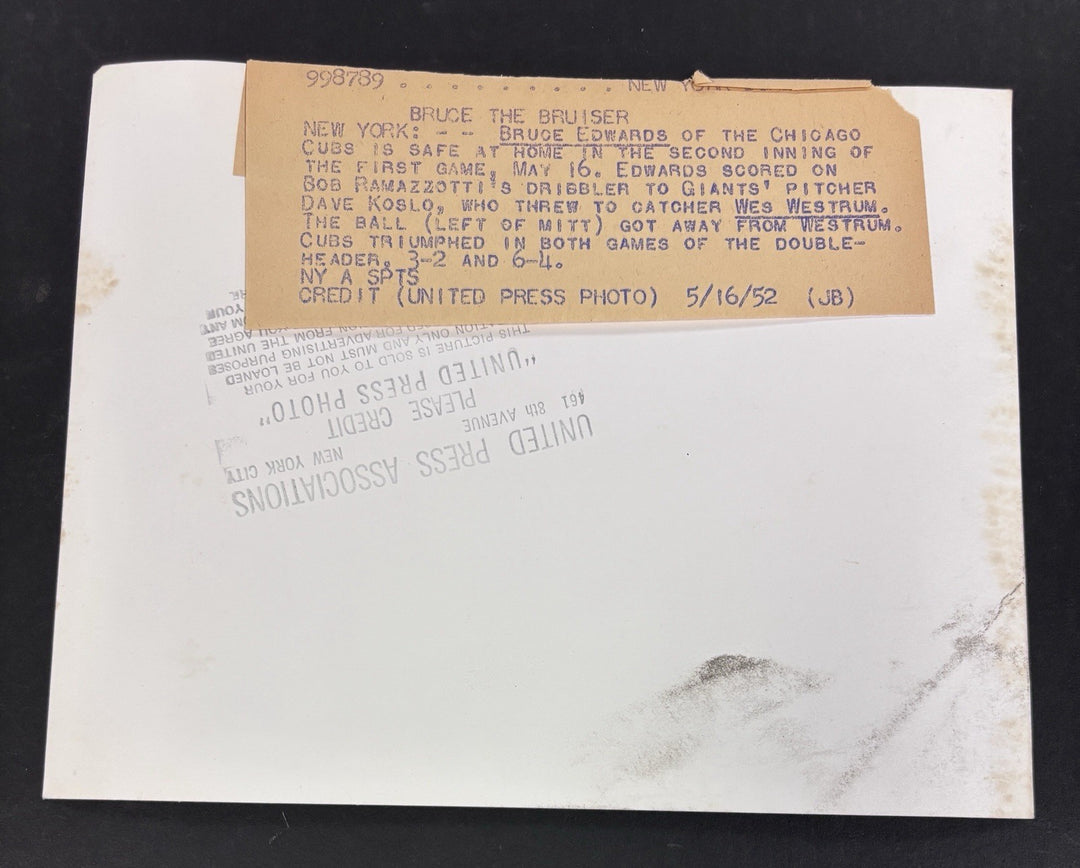 998789 . . . . . . . . . . NEW
BRUCE THE BRUISER
NEW YORK: - - BRUCE EDWARDS OF THE CHICAGO
CUBS IS SAFE AT HOME IN THE SECOND INNING OF
THE FIRST GAME, MAY 16. EDWARDS SCORED ON
BOB RAMAZZOTTI'S DRIBBLER TO GIANTS' PITCHER
DAVE KOSLO, WHO THREW TO CATCHER WES WESTRUM.
THE BALL (LEFT OF MITT) GOT AWAY FROM WESTRUM.
CUBS TRIUMPHED IN BOTH GAMES OF THE DOUBLE-
HEADER, 3-2 AND 6-4.
NY A SPTS
CREDIT (UNITED PRESS PHOTO) 5/16/52 (JB)
UNITED PRESS ASSOCIATIONS
461 8th AVENUE NEW YORK CITY
PLEASE CREDIT
"UNITED PRESS PHOTO"
THIS PICTURE IS SOLD TO YOU FOR YOUR
ONLY AND MUST NOT BE LOANED
FOR ADVERTISING PURPOSES
FROM THE UNITED
YOU AGREE
ANY
YOUR